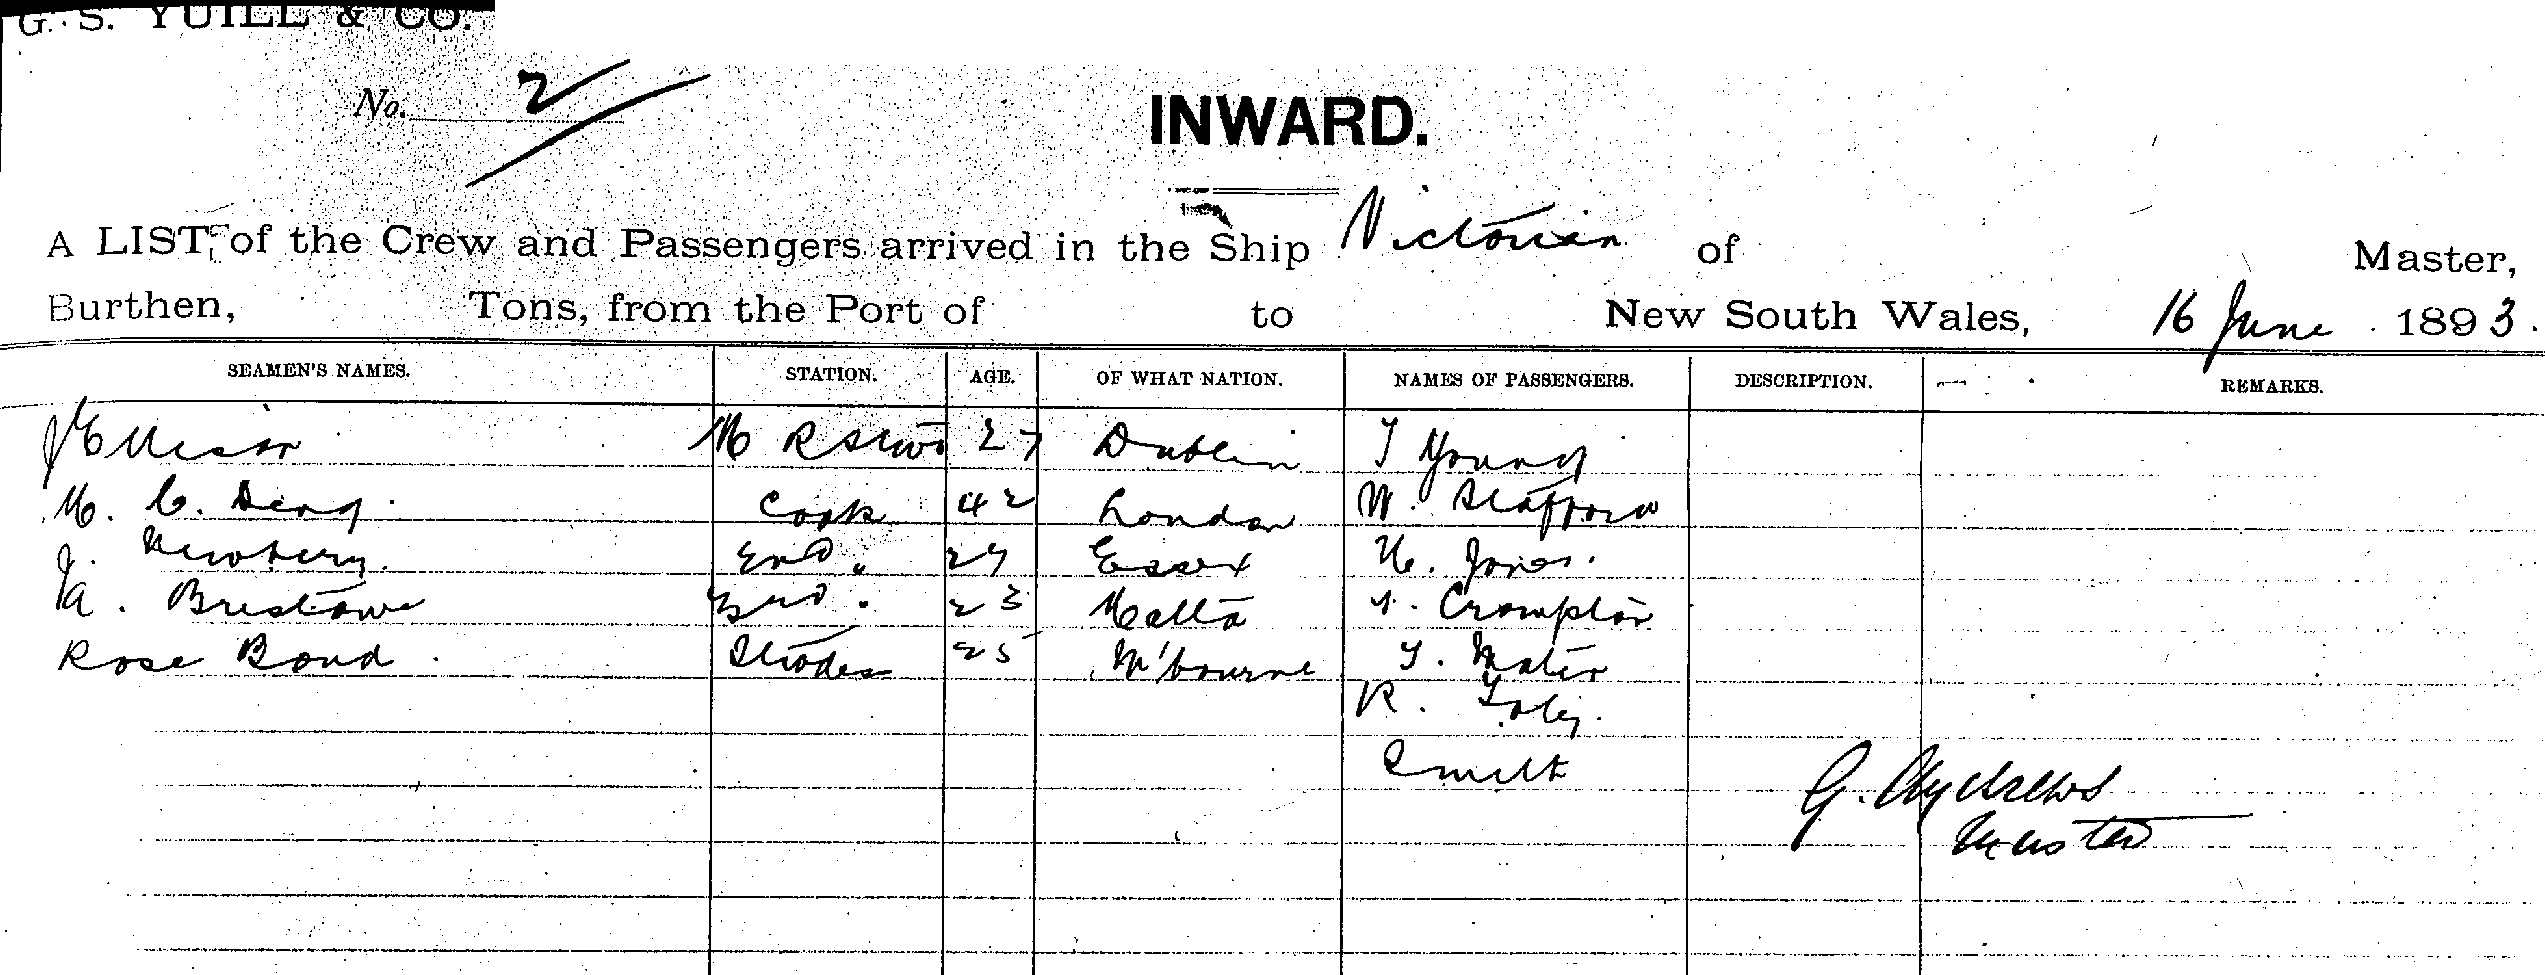 G. S. YUILL & CO.
No. 2
INWARD.
A LIST of the Crew and Passengers arrived in the Ship Victorian of Master,
Burthen, Tons, from the Port of to New South Wales, 16 June 1893.
SEAMEN'S NAMES. STATION. AGE. OF WHAT NATION. NAMES OF PASSENGERS. DESCRIPTION. REMARKS.
J Ellison 27 Dublin T Young
M. C. Cook 42 London W. Stafford
J. Newbery 2nd " 27 Essex H. Jones.
A. Bristowe 3rd " 23 Malta T. Crompton
Rose Bond Stwdess 25 M'bourne T. Mater
R.
Smith
G. Andrews
Master